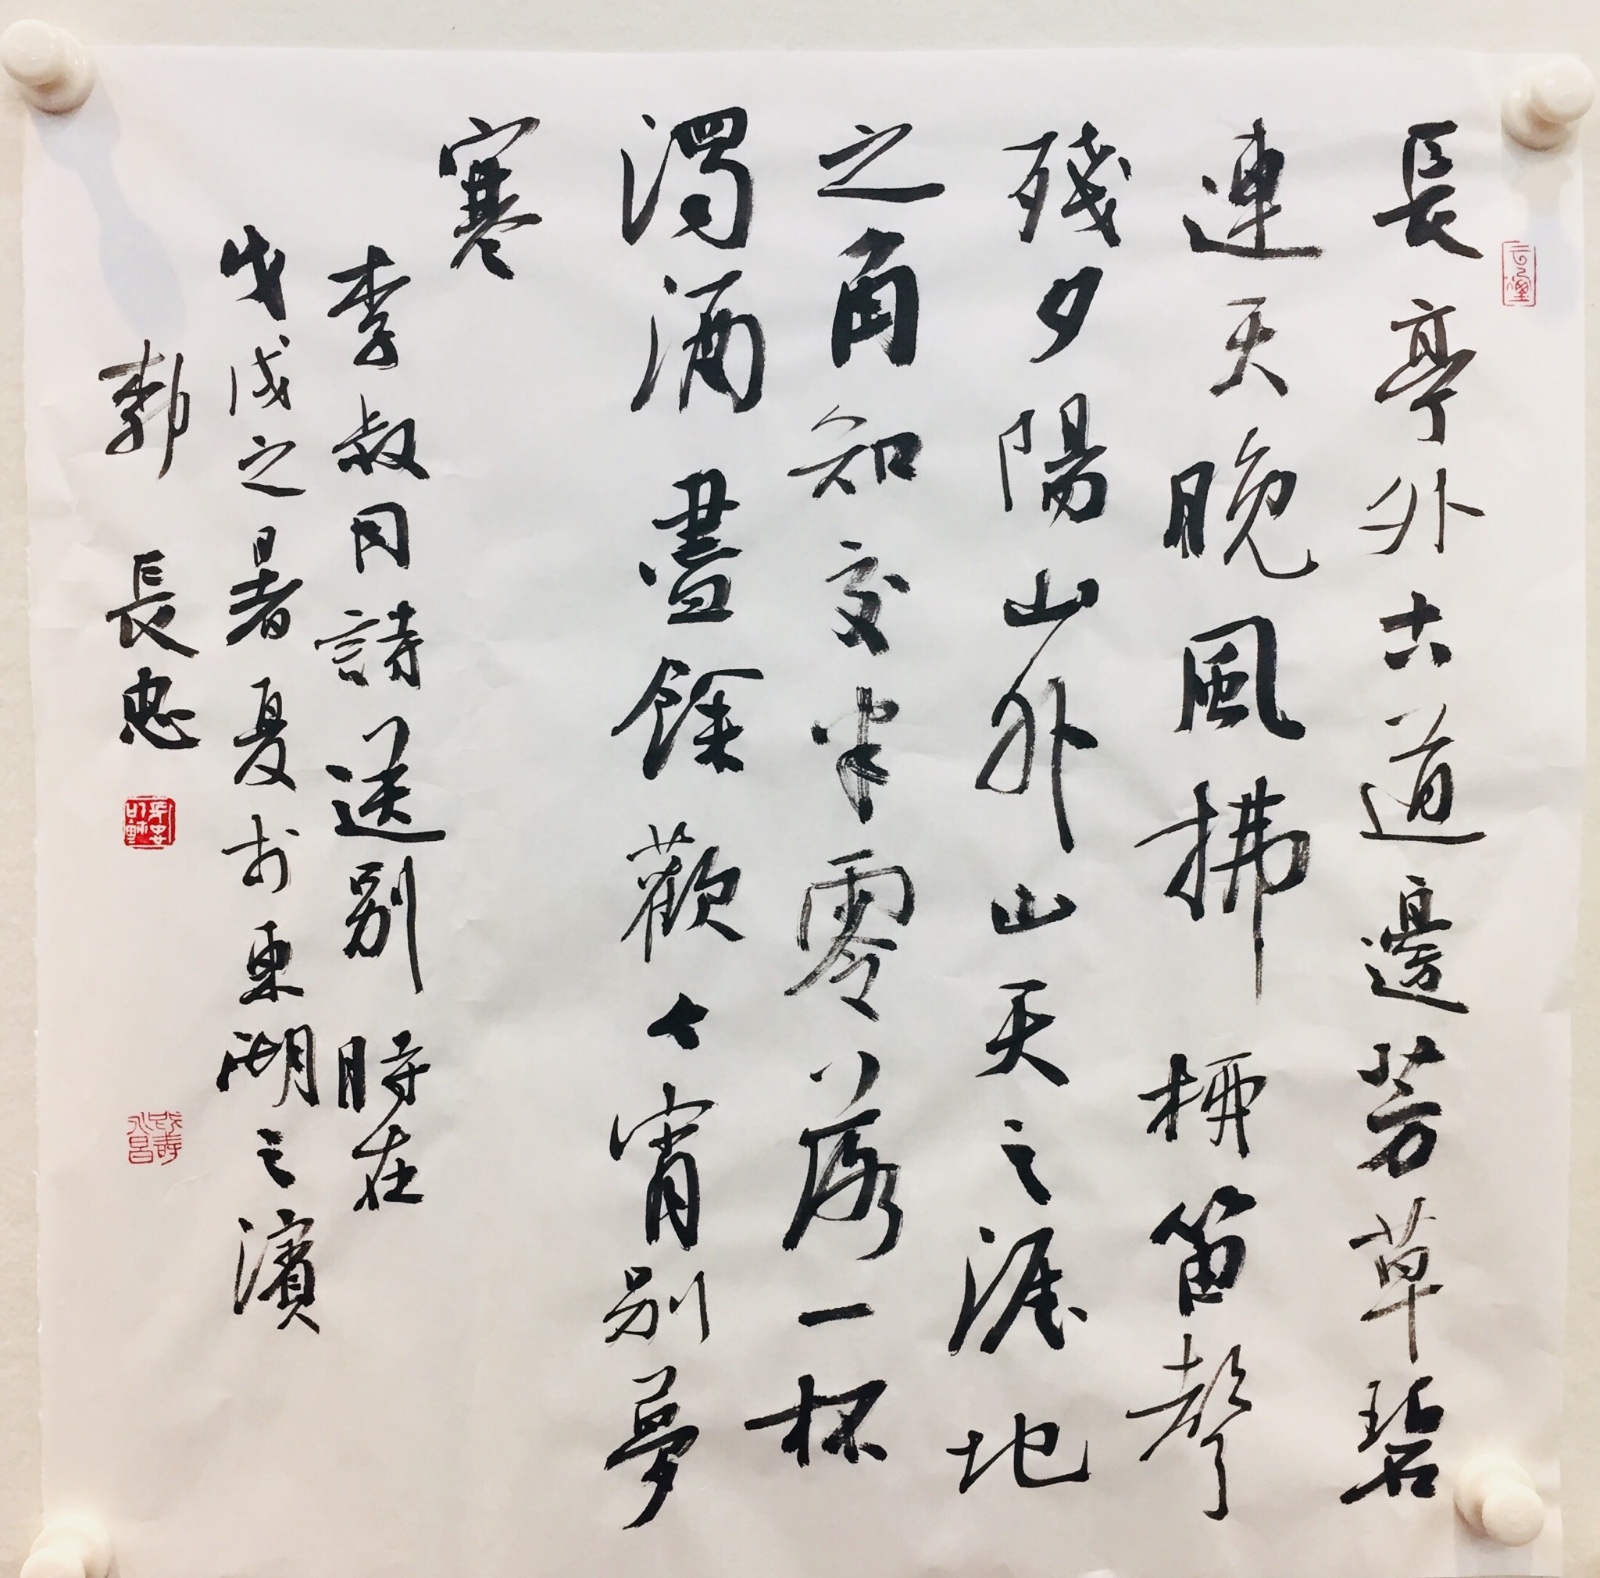 長亭外古道邊芳草碧
連天晚風拂柳笛聲
殘夕陽山外山天之涯地
之角知交半零落一杯
濁酒盡餘歡今宵別夢
寒
李叔同詩送別 時在
戊戌之暑夏於東湖之濱
郭長忠
既壽永昌